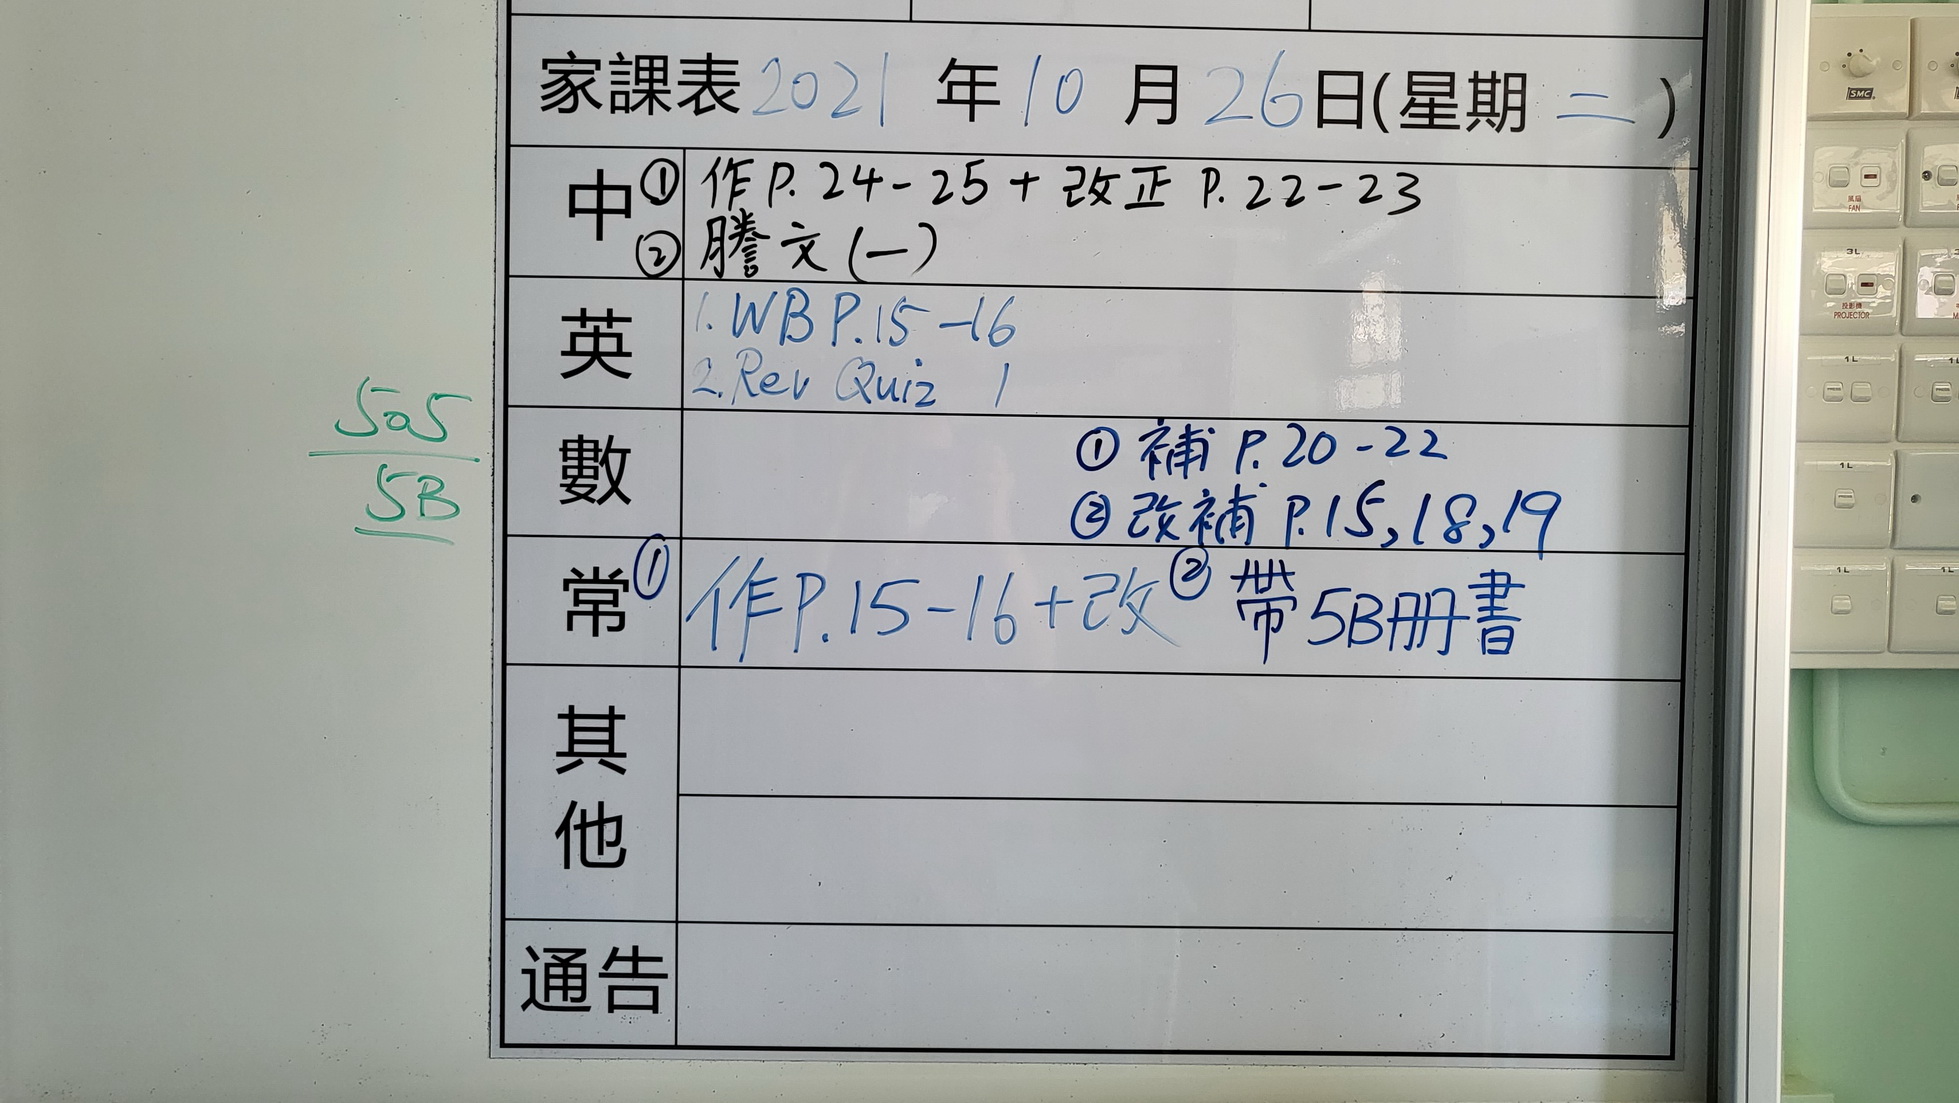 家課表 2021 年 10 月 26 日(星期 二 )
中 ① 作 P. 24-25 + 改正 P. 22-23
② 謄文(一)
英 1. WB P.15-16
2. Rev Quiz 1
數 ① 補 P. 20-22
② 改補 P.15,18,19
常 ① 作P.15-16+改 ② 帶5B冊書
其他
通告
505
5B
SMC
風扇
FAN
3L
投影機
PROJECTOR
1L
1L
1L
1L